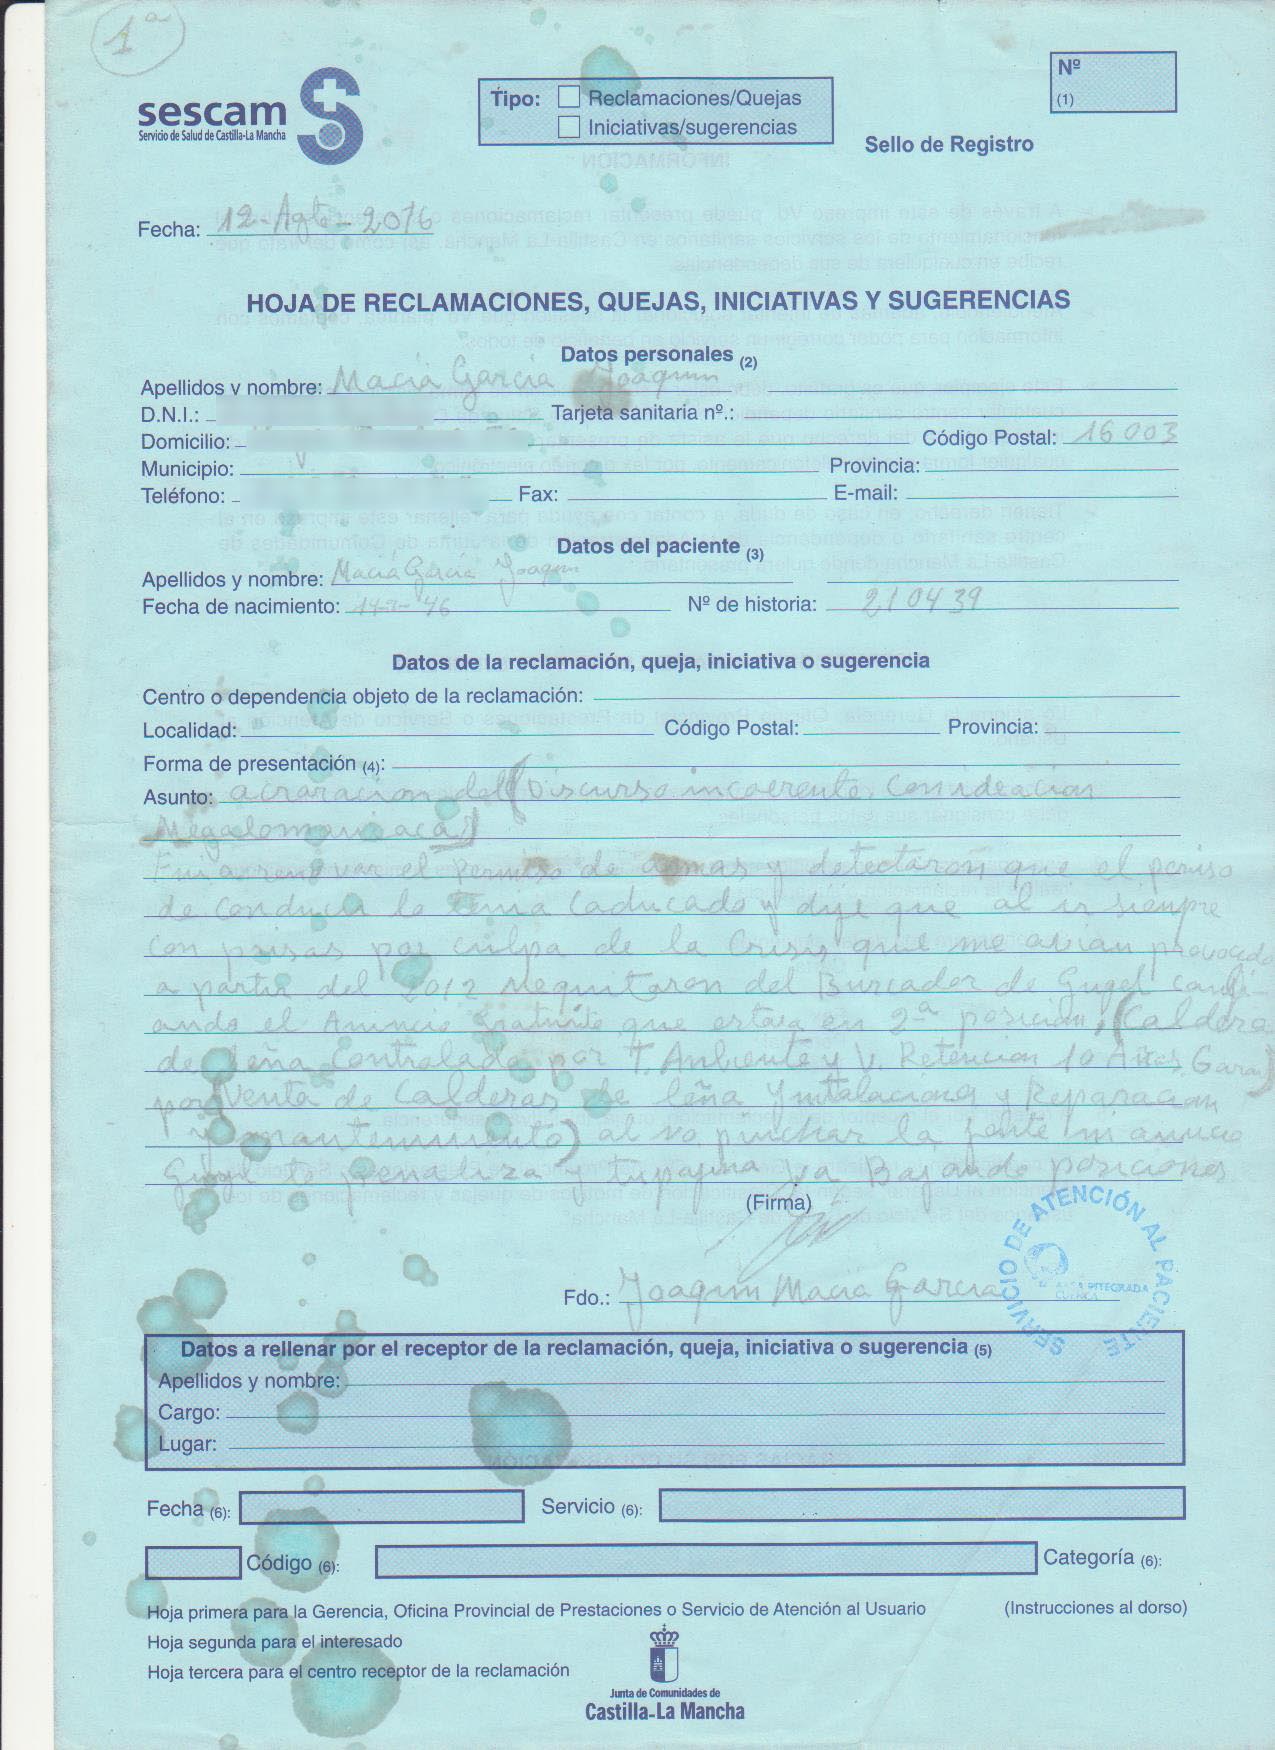 1ª
sescam
Servicio de Salud de Castilla-La Mancha
Tipo: Reclamaciones/Quejas
Iniciativas/sugerencias
Nº
(1)
Sello de Registro
Fecha: 12-Agto-2016
HOJA DE RECLAMACIONES, QUEJAS, INICIATIVAS Y SUGERENCIAS
Datos personales (2)
Apellidos y nombre: Maciá García Joaquin
D.N.I.: Tarjeta sanitaria nº.:
Domicilio: Código Postal: 16003
Municipio: Provincia:
Teléfono: Fax: E-mail:
Datos del paciente (3)
Apellidos y nombre: Maciá García Joaquin
Fecha de nacimiento: Nº de historia: 210439
Datos de la reclamación, queja, iniciativa o sugerencia
Centro o dependencia objeto de la reclamación:
Localidad: Código Postal: Provincia:
Forma de presentación (4):
Asunto: acraracion del (Discurso incoerente. Conideacion
Megalomaniaca)
Fui a renovar el permiso de armas y detectaron que el periso
de conducir lo tenia Caducado y dije que al ir siempre
con prisas por culpa de la Crisis que me avian provocado
a partir del 2012 Mequitaron del Burcador de Gugel canbi-
ando el Anuncio gratuito que estava en 2ª posicion, (Caldera
de leña Controlado por T. Anbiente y V. Retencion 10 Años Garan)
por (Venta de Calderas de leña Yntalaciones y Reparacion
y mantenimiento) al no pinchar la jente mi anuncio
Gugel te penaliza y tu pajina va Bajando posiciones
(Firma)
Fdo.: Joaquin Maciá García
SERVICIO DE ATENCIÓN AL PACIENTE
INTEGRADA
CUENCA
Datos a rellenar por el receptor de la reclamación, queja, iniciativa o sugerencia (5)
Apellidos y nombre:
Cargo:
Lugar:
Fecha (6): Servicio (6):
Código (6): Categoría (6):
Hoja primera para la Gerencia, Oficina Provincial de Prestaciones o Servicio de Atención al Usuario (Instrucciones al dorso)
Hoja segunda para el interesado
Hoja tercera para el centro receptor de la reclamación
Junta de Comunidades de
Castilla-La Mancha